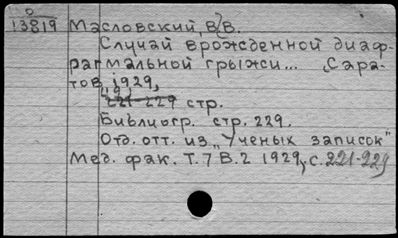 О
13819 Масловский, В.В.
Случай врожденной диаф-
рагмальной грыжи... Сара-
тов, 1929,
19
221-229 стр.
Библиогр. стр. 229.
Отд. отт. из "Ученых записок"
Мед. фак. Т.7 В.2 1929, с. 221-229